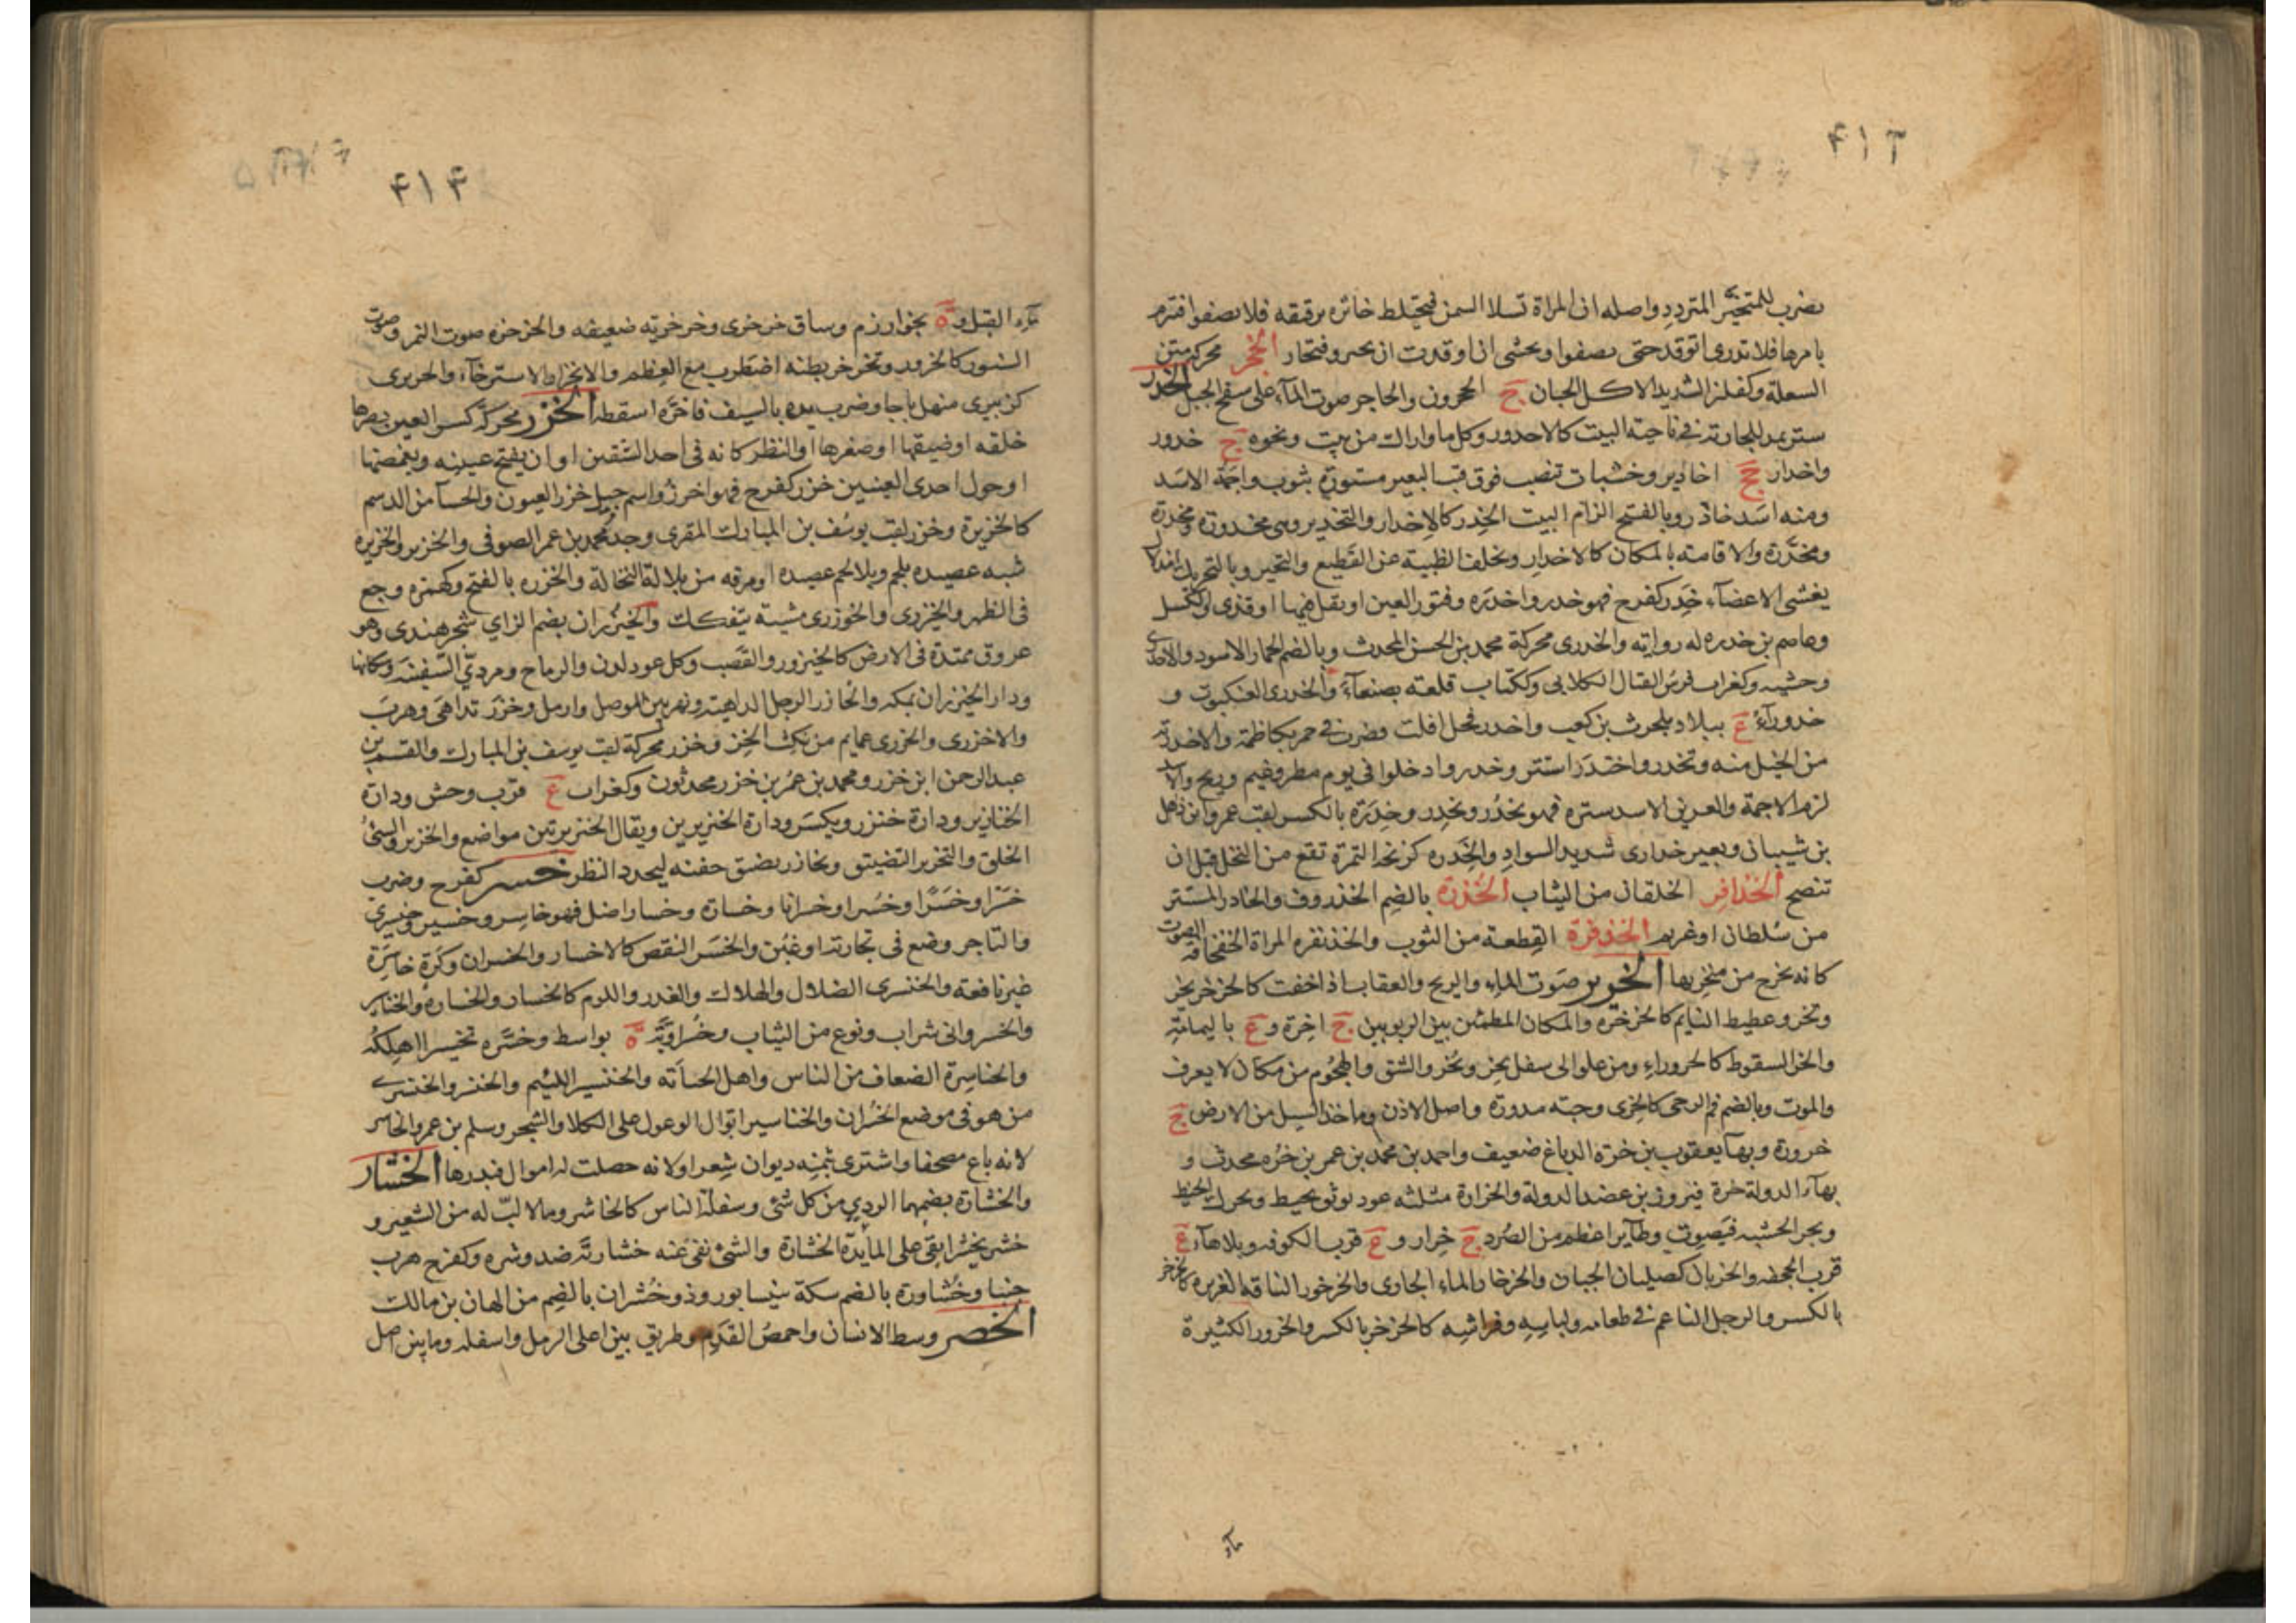 ۴۱۳
يضرب للمتحير المتردد واصله ان المراة تسلا السمن فيختلط خاثره برقيقه فلا يصفوا فتبرم
بامرها فلا تدرى اتوقد حتى يصفوا وتخشى ان اوقدت ان يحترق فتحار الخجر محركة متن
السعلة وكفلز الشديد الاكل الجبان ج الخجرون والحاجر صوت المآء على سفح الجبل الخدر
ستر يمد للجارية فى ناحية البيت كالاخدور وكل ما واراك من بيت ونحوه ج خدور
واخدار جج اخادير وخشبات تنصب فوق قتب البعير مستورة بثوب واجمة الاسد
ومنه اسد خادر وبالفتح الزام البيت الخدر كالاخدار والتخدير وهى مخدورة ومخدرة
ومخدرة والاقامة بالمكان كالاخدار وتخلف الظبية عن القطيع والتحير وبالتحريك امذلال
يغشى الاعضآء خدر كفرح فهو خدر واخدره وفتور العين او ثقل فيها او قذى والكسل
وعاصم بن خدره له رواية والخدرى محركة محمد بن الحسن المحدث وبالضم الحمار الاسود والاخدرى
وحشيه وكغراب فرس القتال الكلابى وككتاب قلعة بصنعآء والخدرى العنكبوت و
خدورآء ع ببلاد بلحرث بن كعب واخدر فحل افلت فضرب فى حمر بكاظمة والاخدرية
من الخيل منه وتخدر واختدر استتر وخدروا دخلوا فى يوم مطر وغيم وريح والاسد
لزم الاجمة والعرين الاسد ستره فهو مخدر ومخدر وخدرة بالكسر لقب عمرو بن ذهل
بن شيبان وبعير خدارى شديد السواد والخدره كزنخة التمرة تقع من النخل قبل ان
تنضج الخذافر الخلقان من الثياب الخذرة بالضم الخذروف والخاذر المستتر
من سلطان او غريم الخذفرة القطعة من الثوب والخذنفره المراة الخفخافة الصوت
كانه يخرج من منخريها الخرير صوت المآء والريح والعقاب اذا خفت كالخرخر يخر
وتخر وغطيط النايم كالخرخرة والمكان المطمئن بين الربوبين ج اخرة وع باليمامة
والخر السقوط كالخرور او من علو الى سفل يخر وتخر والشق والهجوم من مكان لا يعرف
والموت وبالضم فم الرحى كالخرى وحبة مدورة واصل الاذن وما خد السيل من الارض ج
خرورة وبهآ يعقوب بن خرة الدباغ ضعيف واحمد بن محمد بن عمر بن خره محدث و
بهآء الدولة خرة فيروز بن عضد الدولة والخرارة مثلثه عود يوثق بخيط ويحرك الخيط
ويجر الخشبه فيصوت وطآير اعظم من الصرد ج خرار وع قرب الكوفه وبلا هآء ع
قرب الجحفه والخريان كصليان الجبان والخرخار المآء الجارى والخرخور الناقة الغزيره كالخرخر
بالكسر والرجل الناعم فى طعامه ولباسه وفراشه كالخرخر بالكسر والخرور الكثيرة
مآء
۴۱۴
مآء القبل وة بخوارزم وساق خرخرى وخرخرية ضعيفه والخرخره صوت النمر وصوت
السنور كالخرور وتخرخر بطنه اضطرب مع العظم والانخرار الاسترخآء والخريرى
كزبيرى منهل باجا وضرب يده بالسيف فاخره اسقطه الخزر محركة كسر العين بصرها
خلقه او ضيقها او صغرها او النظر كانه فى احد الشقين او ان يفتح عينيه ويغمضها
او حول احدى العينين خزر كفرح فهو اخزر واسم جيل خزر العيون والحسآ من الدسم
كالخزيرة وخزر لقب يوسف بن المبارك المقرى وجد محمد بن عمر الصوفى والخزير والخزيره
شبه عصيده بلحم وبلا لحم عصيده او مرقه من بلالة النخالة والخزره بالفتح وكهمزه وجع
فى الظهر والخيزرى والخوزرى مشية بتفكك والخيزران بضم الزاى شجر هندى وهو
عروق ممتدة فى الارض كالخيزور والقصب وكل عود لدن والرماح ومردى السفينة وسكانها
ودار الخيزران بمكه والخازر الرجل الداهية ونهر بين الموصل واربل وخزر تداهى وهرب
والاخزرى والخزرى عمايم من نكث الخز وخزر محركة لقب يوسف بن المبارك والقسم بن
عبد الرحمن ابن خزر ومحمد بن عمر بن خزر محدثون وكغراب ع قرب وخش ودارة
الخنازير ودارة خنزر ويكسر ودارة الخنزيرين ويقال الخنزيرتين مواضع والخزبر السئ
الخلق والتخزير التضييق وتخازر ضيق جفنه ليحدد النظر خسر كفرح وضرب
خسرا وخسرا وخسرا وخسرانا وخسارة وخسارا ضل فهو خاسر وخسير وخيسرى
والتاجر وضع فى تجارته او غبن والخسر النقص كالاخسار والخسران وكرة خاسرة
غير نافعة والخنسرى الضلال والهلاك والغدر واللوم كالخسار والخسارة والخناسر
والخسروانى شراب ونوع من الثياب وخسراوية ة بواسط وخسره تخسيرا اهلكه
والخناسرة الضعاف من الناس واهل الخيآنه والخنسير اللئيم والخنسر والخنسرى
من هو فى موضع الخسران والخناسير ابوال الوعول على الكلا والشجر وسلم بن عمرو الخاسر
لانه باع مصحفا واشترى بثمنه ديوان شعر او لانه حصلت له اموال فبذرها الخشار
والخشارة بضمهما الردى من كل شئ وسفلة الناس كالخاشر وما لا لب له من الشعير و
خشر يخشر ابقى على المآيدة الخشارة والشئ نقى عنه خشارته ضد وشره وكفرح هرب
جبنا وخشاورة بالضم سكة بنيسابور وذو خشران بالضم من الهان بن مالك
الخصر وسط الانسان واخمص القدم وطريق بين اعلى الرمل واسفله وما بين اصل